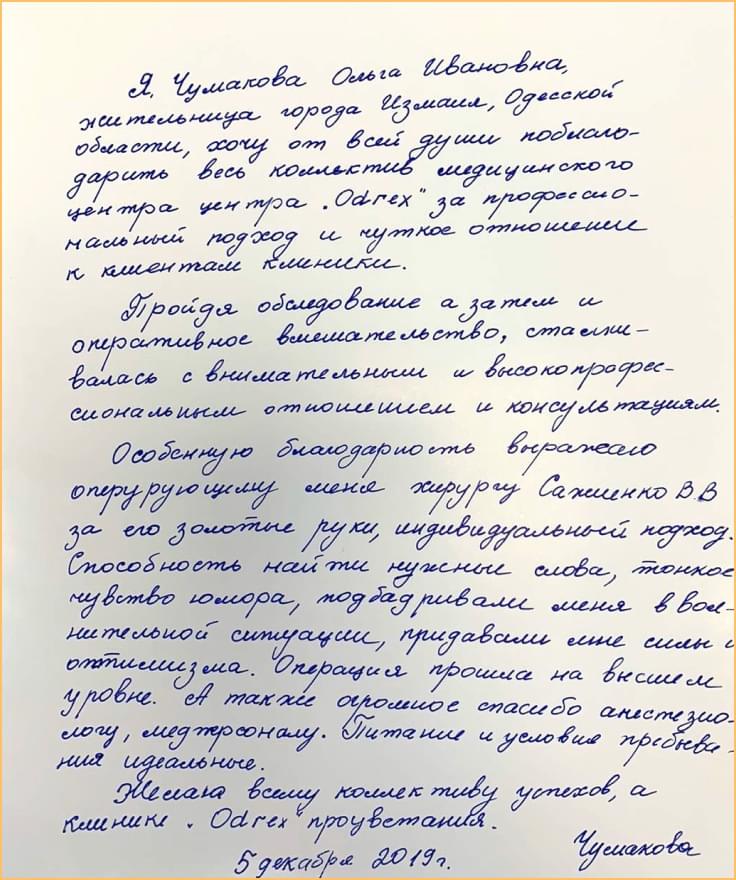 Я, Чумакова Ольга Ивановна,
жительница города Измаил, Одесской
области, хочу от всей души поблаго-
дарить весь коллектив медицинского
центра центра „Odrex" за профессио-
нальный подход и чуткое отношение
к клиентам клиники.
Пройдя обследование а затем и
оперативное вмешательство, сталки-
валась с внимательным и высокопрофес-
сиональным отношением и консультациям.
Особенную благодарность выражаю
оперурующему меня хирургу Сажиенко В.В
за его золотые руки, индивидуальный подход.
Способность найти нужные слова, тонкое
чувство юмора, подбадривали меня в вол-
нительной ситуации, придавали мне силы и
оптимизма. Операция прошла на высшем
уровне. А также огромное спасибо анестезио-
логу, медперсоналу. Питание и условия пребыва-
ния идеальные.
Желаю всему коллективу успехов, а
клинике „Odrex" процветания.
5 декабря 2019г.
Чумакова